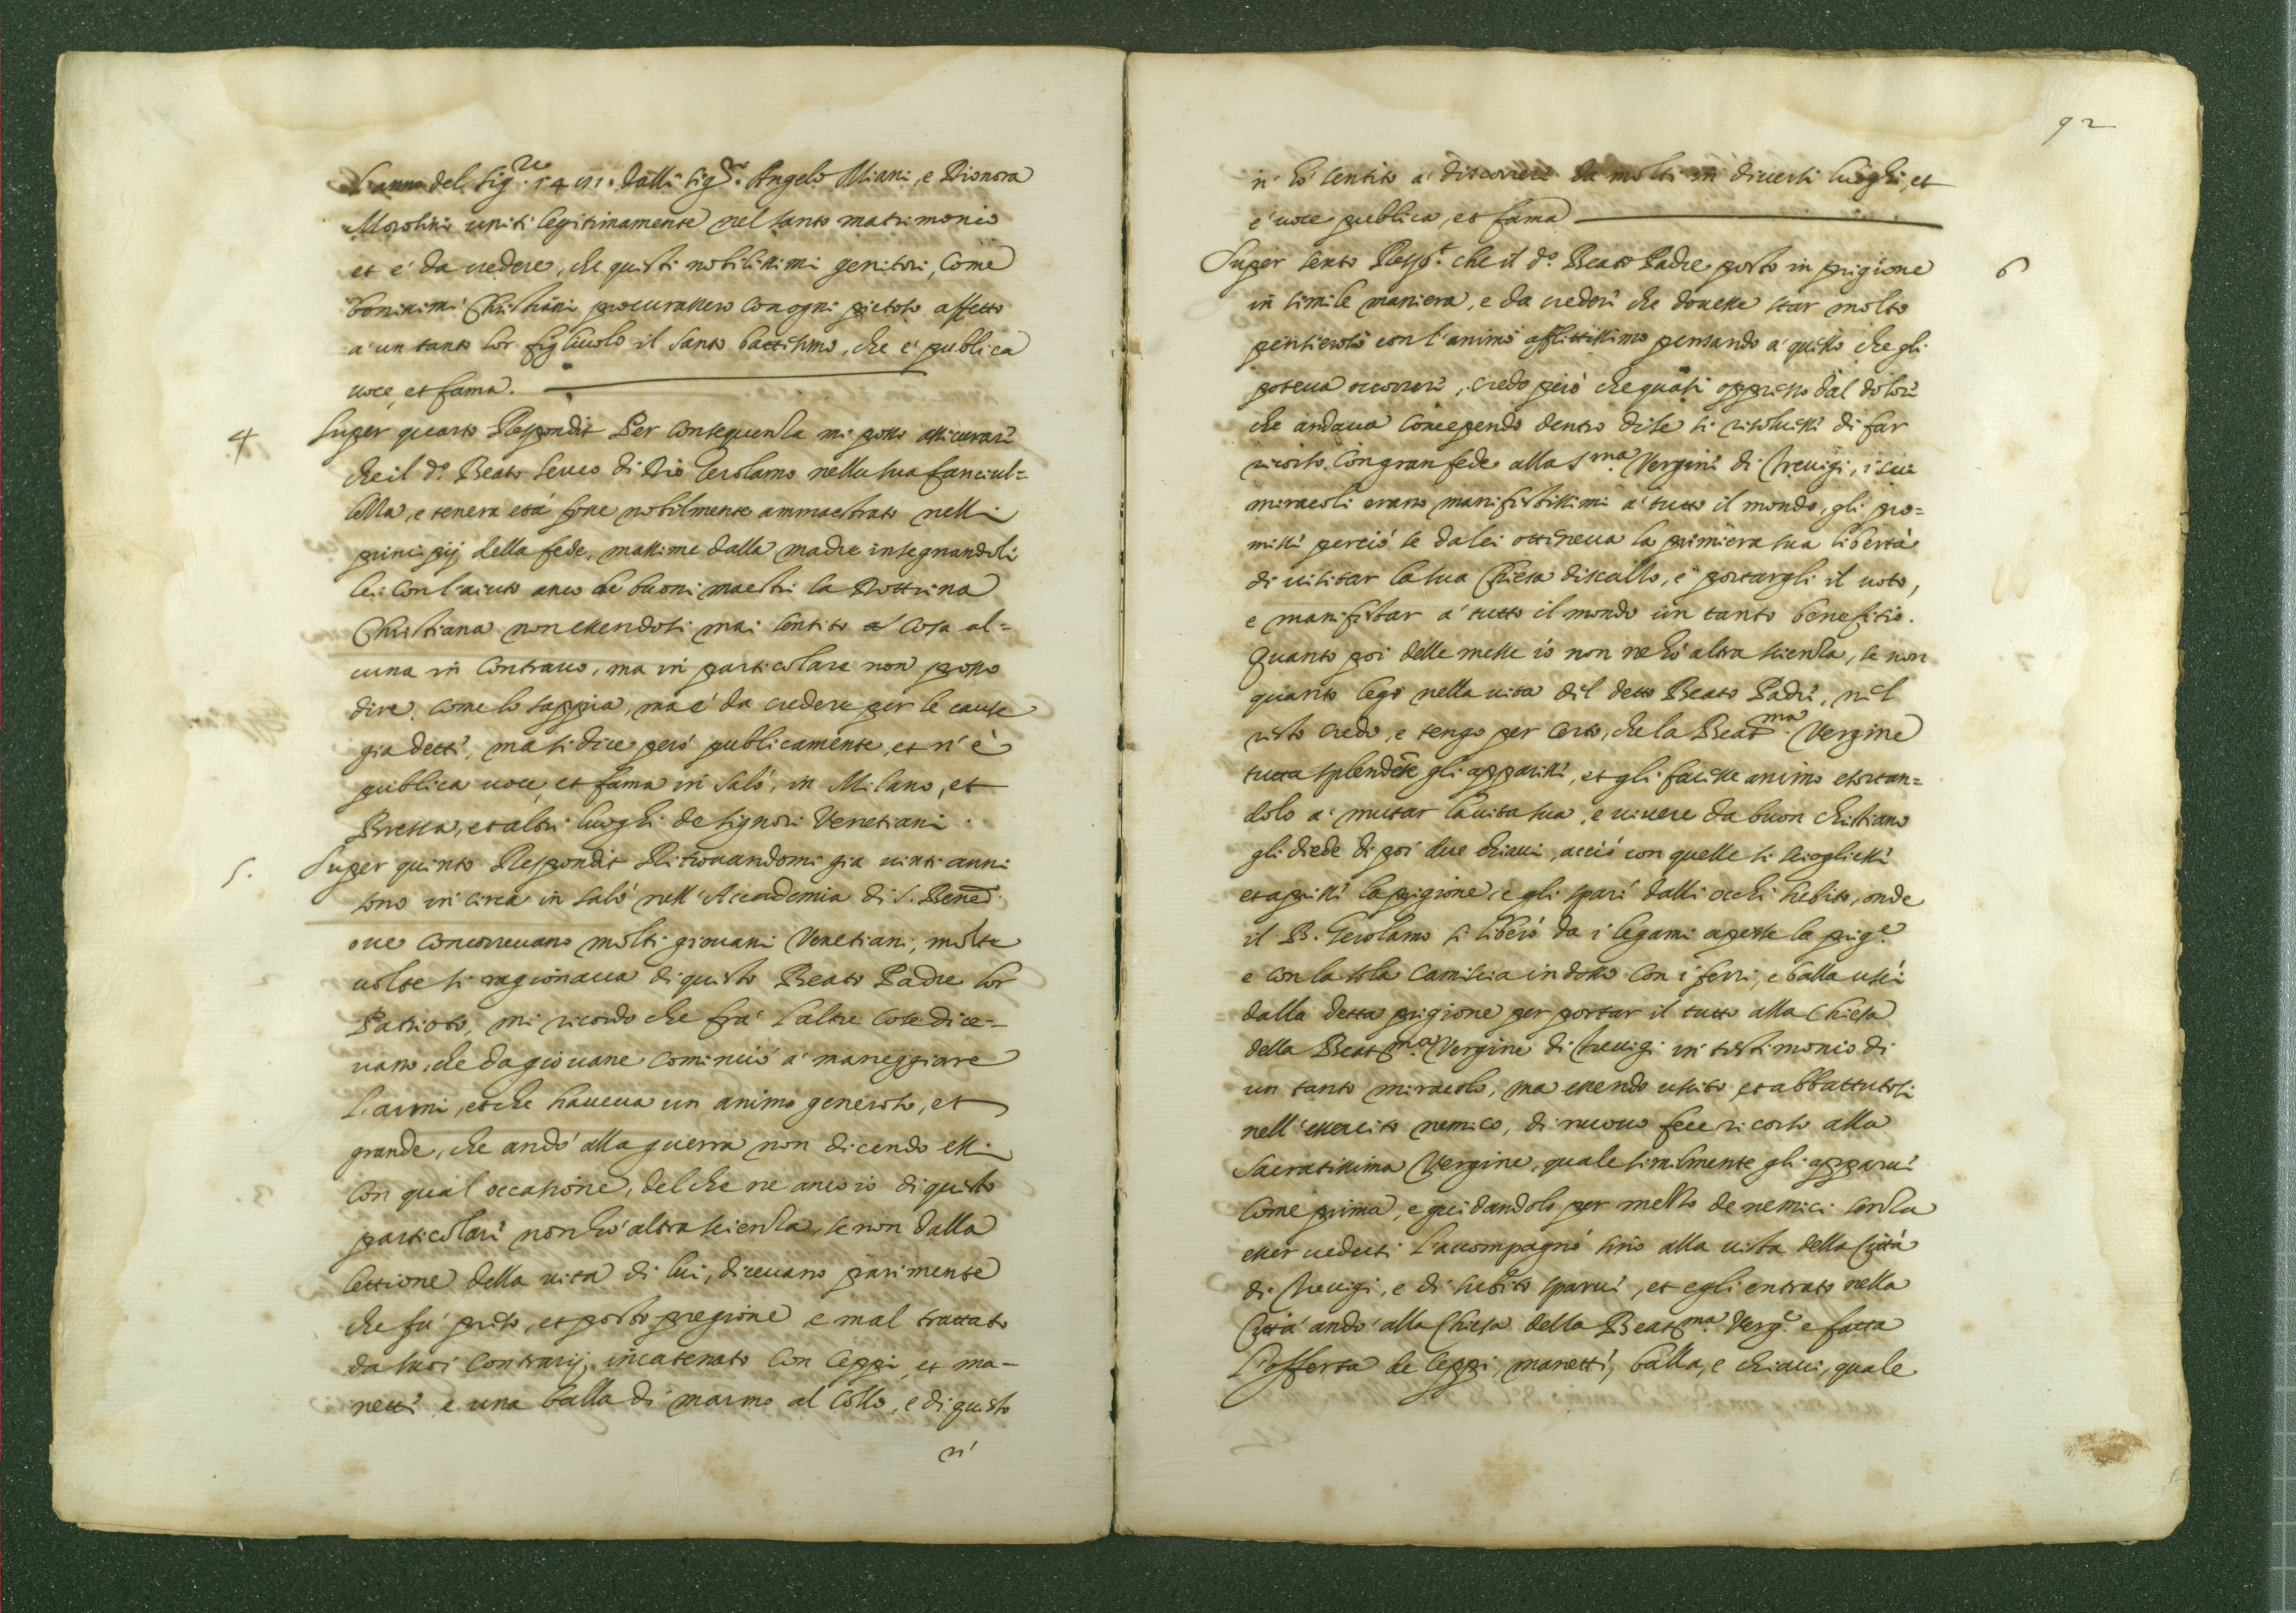 L'anno del Sig.re 1481. dalli Sig.ri Angelo Miani, e Dionora
Morosini uniti legitimamente nel santo matrimonio
et e' da credere, che questi nobilissimi genitori, come
bonissimi Christiani procurassero con ogni pietoso affetto
a' un tanto lor figliuolo il santo battesimo, che e' publica
uoce, et fama.
4 Super quarto Respondit Per consequenza mi posso assicurare
che il d.o Beato seruo di Dio Gerolamo nella sua fanciul=
lezza, e tenera età fosse nobilmente ammaestrato nelli
principij della fede, massime dalla madre insegnandoli
lei con l'aiuto anco de buoni maestri la Dottrina
Christiana non essendosi mai sentito cosa al=
cuna in contrario, ma in particolare non posso
dire, come lo sappia, ma e' da credere per le cause
gia dette, ma si dice però publicamente, et n'è
publica uoce et fama in Salò, in Milano, et
Bressa, et altri luoghi de Signori Venetiani.
5. Super quinto Respondit Ritrouandomi gia uinti anni
sono in circa in Salò nell'Accademia di S. Bened.
oue concorreuano molti giouani Venetiani, molte
uolte si ragionaua di questo Beato Padre lor
Patrioto, mi ricordo che frà l'altre cose dice=
uano, che da giouane cominciò a' maneggiare
l'armi, et che haueua un animo generoso, et
grande, che andò alla guerra non dicendo essi
con qual occasione, del che ne anco io di questo
particolare non hò altra scienza, se non dalla
lettione della uita di lui, diceuano parimente
che fù preso, et posto pregione e mal trattato
da suoi contrarij, incatenato con ceppi, et ma=
nette e una balla di marmo al collo, e di questo
n'
92
n' hò sentito a' discorrere da molti in diuersi luoghi, et
e' uoce publica, et fama
Super sexto Resp.t che il d.o Beato Padre posto in prigione 6
in simile maniera, e da creder che douesse star molto
pensieroso con l'animo afflittissimo pensando a' quello che gli
poteua occorrere, credo però che quasi oppresso dal dolore
che andaua concependo dentro di se si risoluesse di far
ricorso con gran fede alla S.ma Vergine di Treuigi, i cui
miracoli erano manifestissimi a' tutto il mondo, gli pro=
misse perciò se da lei otteneua la primiera sua libertà
di uisitar la sua Chiesa discalzo, e portargli il uoto,
e manifestar a' tutto il mondo un tanto benefitio.
Quanto poi delle messe io non ne hò altra scienza, se non
quanto lego nella uita del detto Beato Padre, nel
resto credo, e tengo per certo, che la Beat.ma Vergine
tutta splendēte gli apparisse, et gli facesse animo essortan=
dolo a' mutar la uita sua, e uiuere da buon christiano
gli diede di poi due chiaui, acciò con quelle si sciogliesse
et aprisse la prigione e gli sparì dalli occhi subito, onde
il B. Gerolamo si liberò da i legami aperse la prig.e
e con la sola camiscia in dosso con i ferri, e balla uscì
dalla detta prigione per portar il tutto alla Chiesa
della Beat.ma Vergine di Treuigi in testimonio di
un tanto miracolo, ma essendo uscito, et abbattutosi
nell'essercito nemico, di nuouo fece ricorso alla
Sacratissima Vergine, quale similmente gli apparue
come prima, e guidandolo per mezzo de nemici senza
esser ueduti l'accompagnò sino alla uista della Città
di Treuigi, e di subito sparue, et egli entrato nella
Città andò alla Chiesa della Beat.ma Verg.e e fatta
l'offerta de ceppi, manette, balla, e chiaui, quale